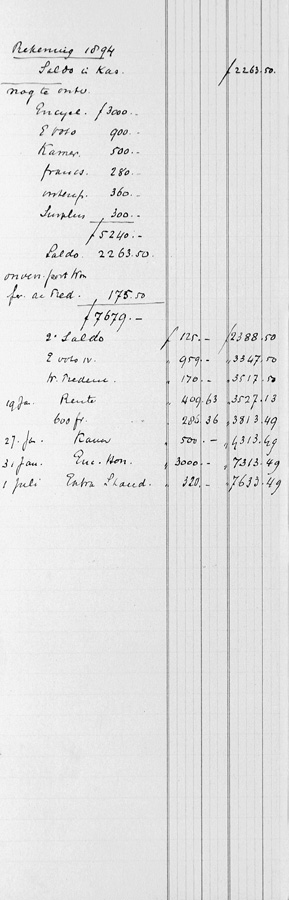 Rekening 1894
Saldo in Kas. f 2263.50.
nog te ontv.
Encycl. f 3000.-
E voto 900.-
Kamer 500.-
francs. 280.-
360.-
Surplus 300.-
f 5240.-
Saldo. 2263.50.
175.50
f 7679.-
2e Saldo f 125.- f 2388.50
E voto IV. „ 959.- „ 3347.50
„ 170.- „ 3517.50
19 Jan. Rente „ 409,63 „ 3527.13
600 fr. „ 286 36 „ 3813.49
27. Jan. Kamer „ 500.- „ 4313.49
31 Jan. Enc. Hon. „ 3000.- „ 7313.49
1 Juli Extra Stand. „ 320.- „ 7633.49